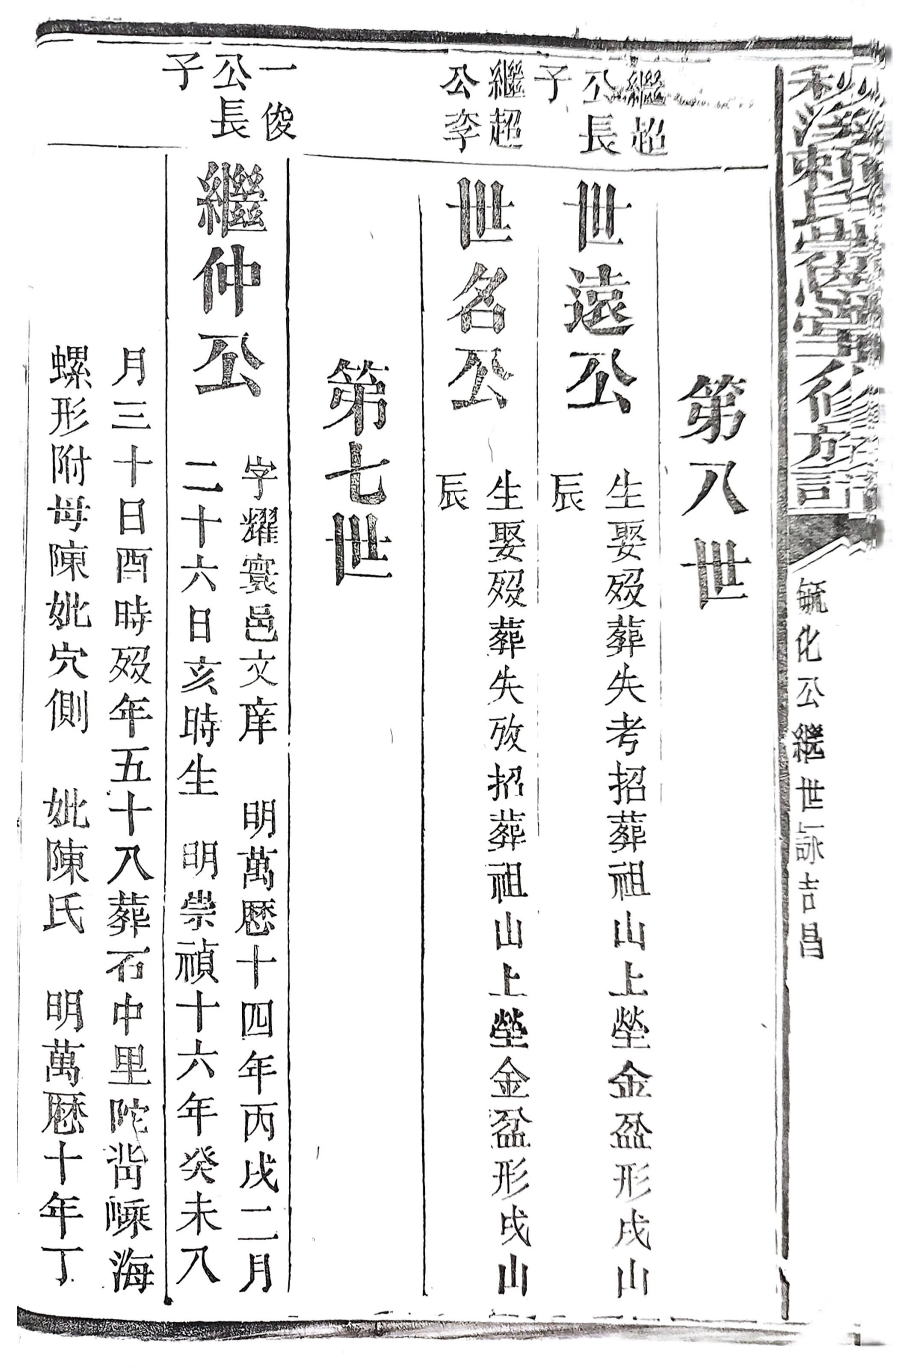 毓化公繼世詠吉昌
第八世
繼超公長子
世遠公
生娶殁葬失考招葬祖山上塋金盆形戌山
辰
繼超公李
世名公
生娶殁葬失攷招葬祖山上塋金盆形戌山
辰
第七世
一俊公長子
繼仲公
字耀寰邑文庠 明萬厯十四年丙戌二月
二十六日亥時生 明崇禎十六年癸未八
月三十日酉時殁年五十八葬石中里陀嵴嵊海
螺形附母陳妣穴側 妣陳氏 明萬厯十年丁